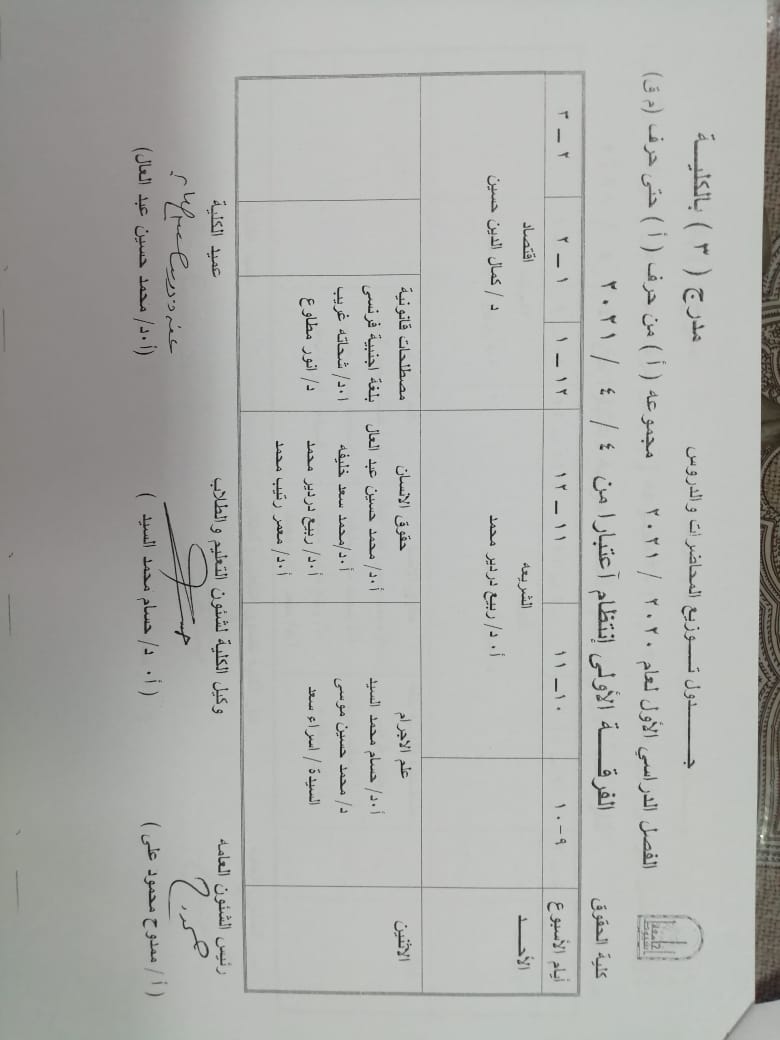 جامعة أسيوط
كلية الحقوق
جـــدول تـــوزيع المحاضرات والدروس مدرج ( ٣ ) بالكليـــة
الفصل الدراسي الأول لعام ٢٠٢٠ / ٢٠٢١ مجموعه ( أ ) من حرف ( أ ) حتى حرف (م ق)
الفرقـــة الأولى إنتظام أعتبارا من ٤ / ٤ / ٢٠٢١
أيام الأسبوع ٩-١٠ ١٠-١١ ١١-١٢ ١٢-١ ١-٢ ٢-٣
الأحـــد
الشريعه
أ.د/ ربيع دردير محمد
اقتصاد
د / كمال الدين حسين
الاثنين
علم الاجرام
أ.د/ حسام محمد السيد
د/ محمد حسين موسى
السيدة / اسراء سعد
حقوق الانسان
أ.د/ محمد حسين عبد العال
أ.د/محمد سعد خليفه
أ.د/ ربيع دردير محمد
أ.د/ معمر رتيب محمد
مصطلحات قانونية
بلغة اجنبية فرنسى
ا.د/ شحاته غريب
د/ انور مطاوع
رئيس الشئون العامه وكيل الكلية لشئون التعليم والطلاب عميد الكلية
( أ/ ممدوح محمود على ) ( أ. د/ حسام محمد السيد ) (أ.د/ محمد حسين عبد العال)